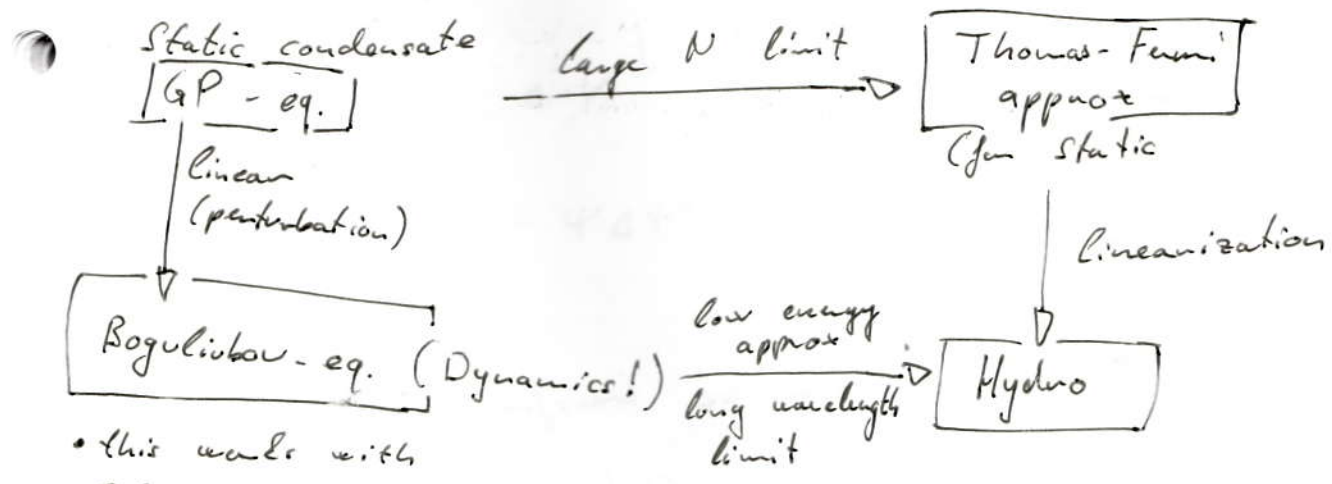 Static condensate
GP - eq.
large N limit
Thomas-Fermi
approx
(for static
linear
(perturbation)
linearization
Boguliubov-eq. (Dynamics!)
low energy
approx
long wavelength
limit
Hydro
• this works with